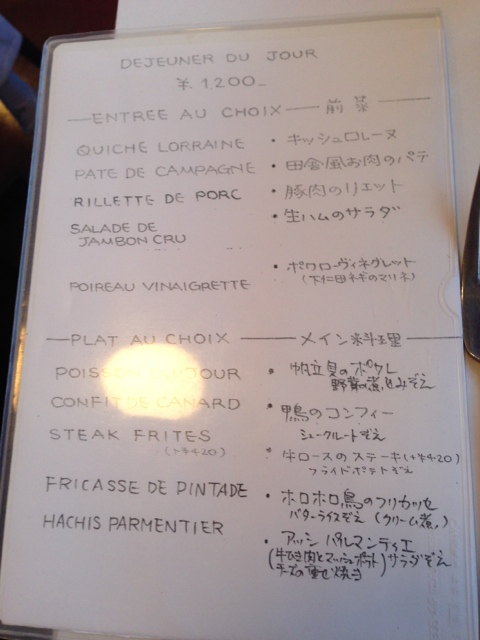 DEJEUNER DU JOUR
¥.1,200_
ENTREE AU CHOIX 前菜
QUICHE LORRAINE ・キッシュロレーヌ
PATE DE CAMPAGNE ・田舎風お肉のパテ
RILLETTE DE PORC ・豚肉のリエット
SALADE DE
JAMBON CRU ・生ハムのサラダ
POIREAU VINAIGRETTE ・ポワローヴィネグレット
(下仁田ネギのマリネ)
PLAT AU CHOIX メイン料理
POISSON DU JOUR ・帆立貝のポワレ
野菜の煮込みぞえ
CONFIT DE CANARD ・鴨のコンフィー
シュークルートぞえ
STEAK FRITES ・牛ロースのステーキ(+¥420)
(+¥420) フライドポテトぞえ
FRICASSE DE PINTADE ・ホロホロ鳥のフリカッセ
バターライスぞえ (クリーム煮)
HACHIS PARMENTIER ・アッシ パルマンティエ
(牛ひき肉とマッシュポテト) サラダぞえ
チーズの重ね焼き